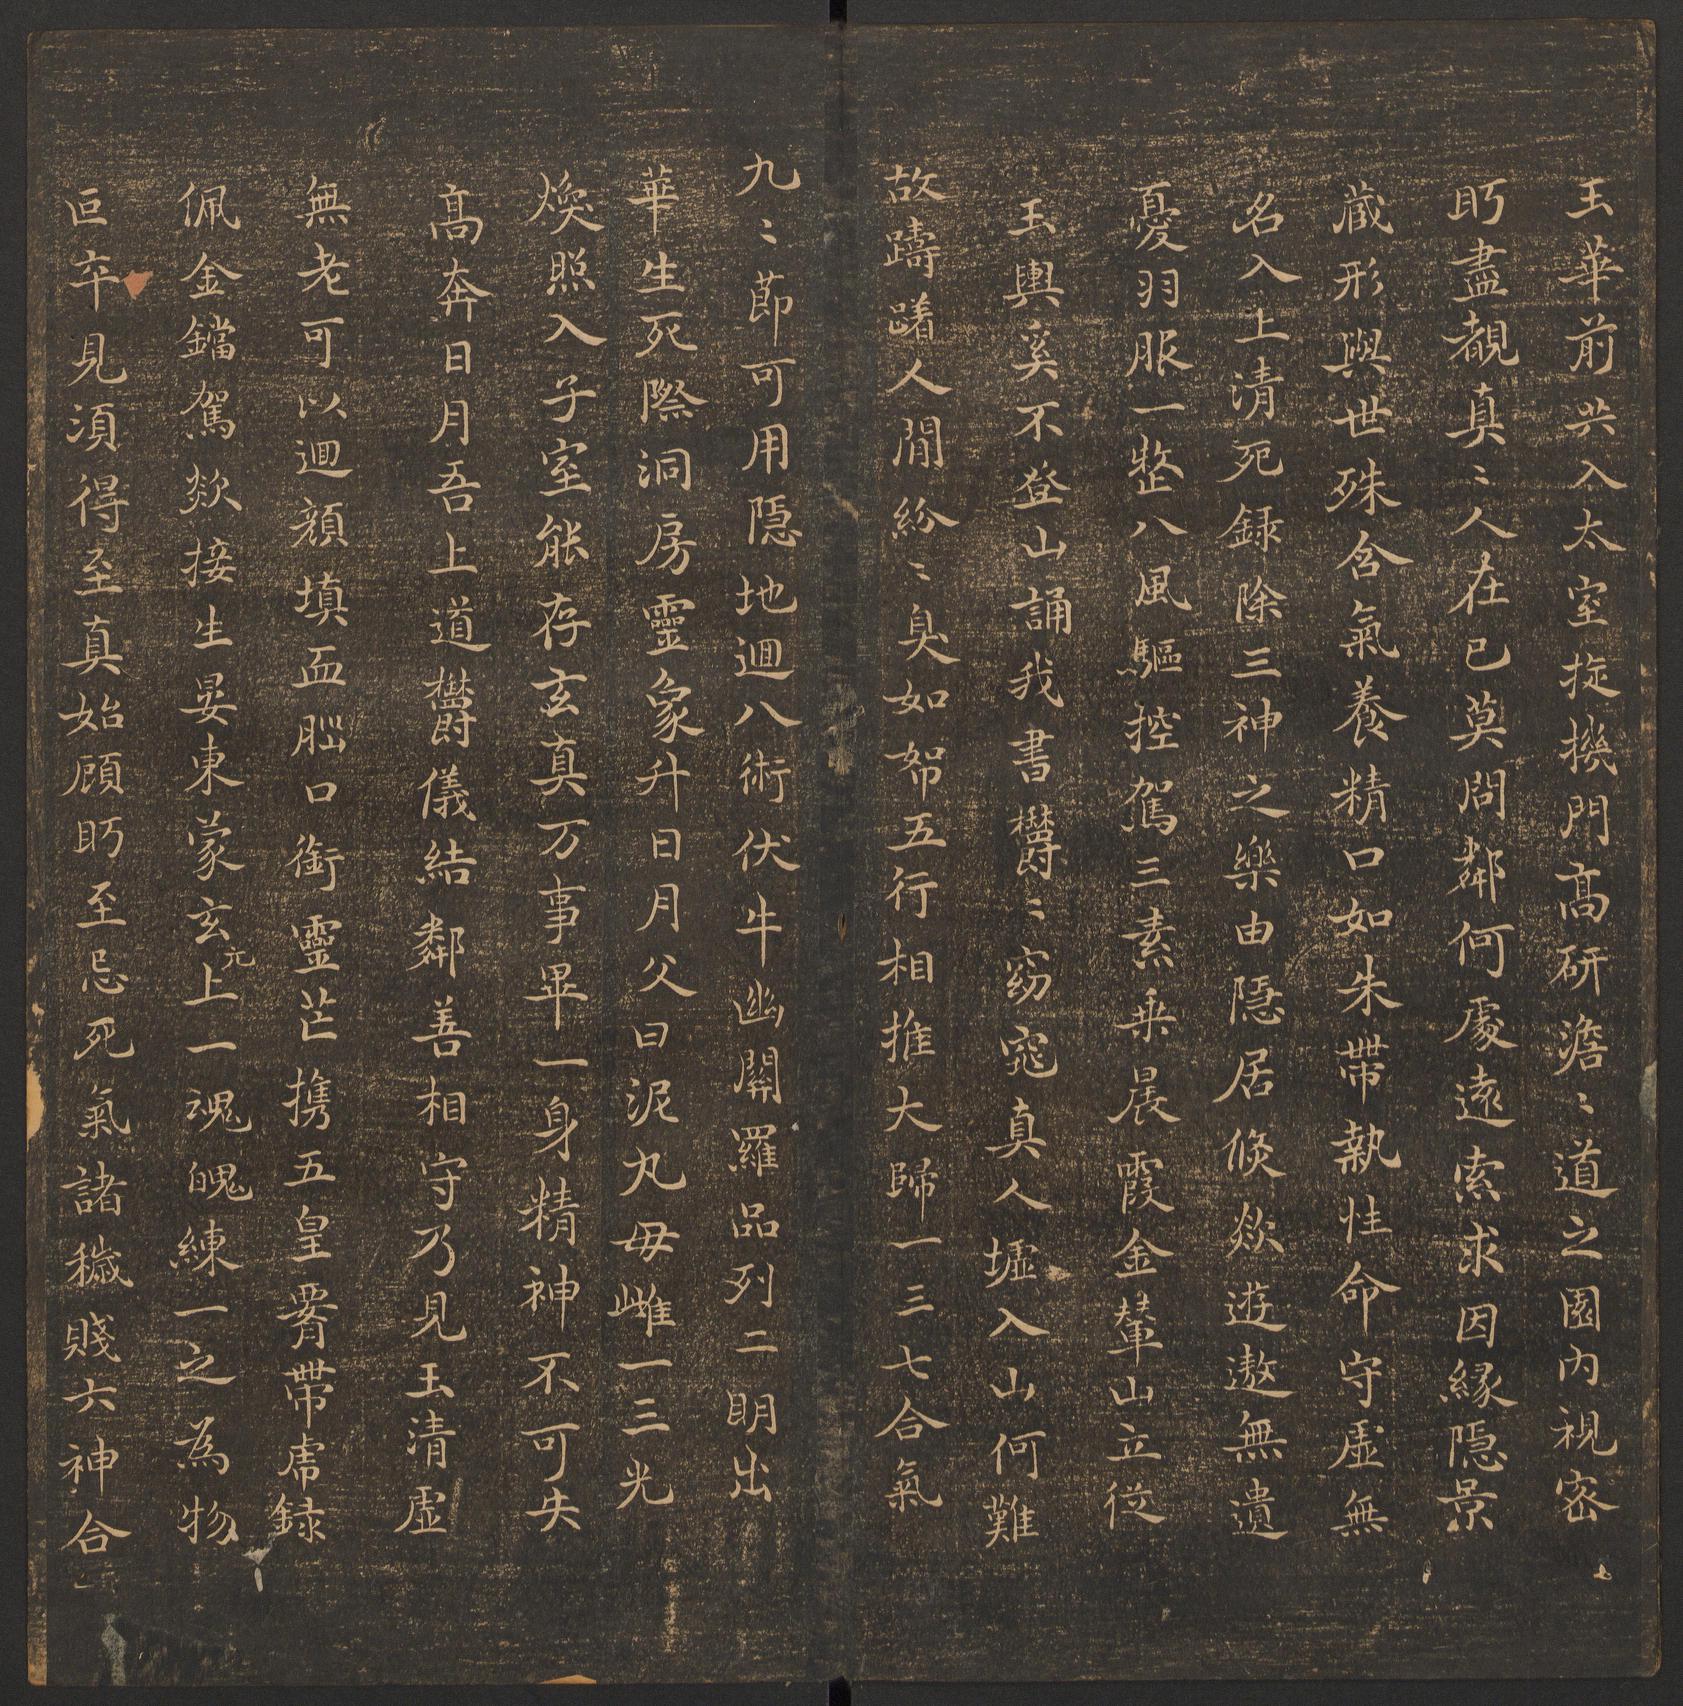 玉華前共入太室㨈機門高研澹〻道之園內視密
眄盡覩真〻人在己莫問鄰何處遠索求因緣隱景
藏形與世殊含氣養精口如朱帶執性命守虛無
名入上清死錄除三神之樂由隱居倏欻遊遨無遺
憂羽服一整八風驅控駕三素乘晨霞金輦山立從
玉輿奚不登山誦我書欝〻窈窕真人墟入山何難
故躊躇人閒紛〻臭如帤五行相推大歸一三七合氣
九〻節可用隱地迴八術伏牛幽闕羅品列二明出
華生死際洞房靈象升日月父曰泥丸母雌一三光
煥照入子室能存玄真万事畢一身精神不可失
高奔日月吾上道欝儀結鄰善相守乃見玉清虛
無老可以迴顏填血腦口銜靈芒攜五皇要帶虎錄
佩金鐺駕欻接生晏東蒙玄元上一魂魄練一之為物
叵卒見須得至真始顧眄至忌死氣諸穢賤六神合